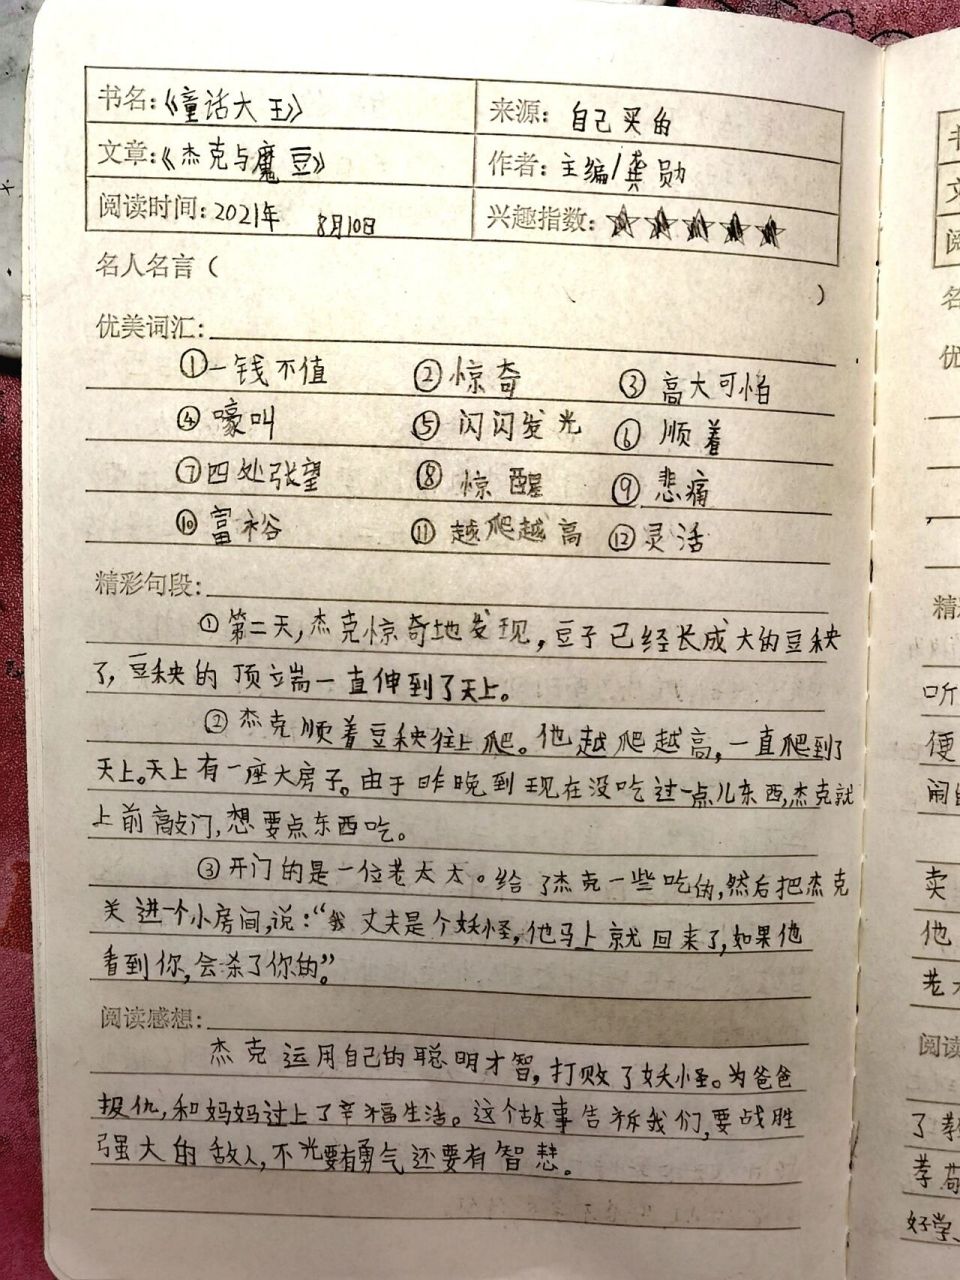 书名:《童话大王》 来源: 自己买的
文章:《杰克与魔豆》 作者: 主编/龚勋
阅读时间: 2021年 8月10日 兴趣指数: ★★★★★
名人名言（
）
优美词汇:
①一钱不值 ②惊奇 ③高大可怕
④嚎叫 ⑤闪闪发光 ⑥顺着
⑦四处张望 ⑧惊醒 ⑨悲痛
⑩富裕 ⑪越爬越高 ⑫灵活
精彩句段:
①第二天,杰克惊奇地发现,豆子已经长成大的豆秧
了,豆秧的顶端一直伸到了天上。
②杰克顺着豆秧往上爬。他越爬越高,一直爬到了
天上。天上有一座大房子。由于昨晚到现在没吃过一点儿东西,杰克就
上前敲门,想要点东西吃。
③开门的是一位老太太。给了杰克一些吃的,然后把杰克
关进一个小房间,说:“我丈夫是个妖怪,他马上就回来了,如果他
看到你,会杀了你的”。
阅读感想:
杰克运用自己的聪明才智,打败了妖怪。为爸爸
报仇,和妈妈过上了幸福生活。这个故事告诉我们,要战胜
强大的敌人,不光要有勇气还要有智慧。
听
便
闹
卖
他
老
阅读
了
孝敬
好学、